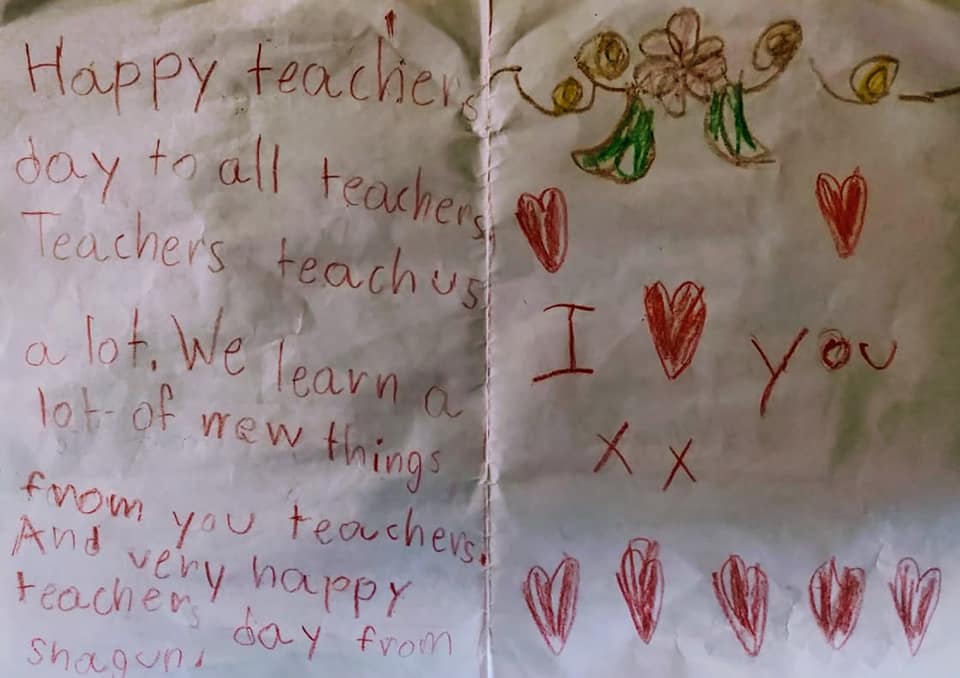 Happy teachers
day to all teachers
Teachers teach us
a lot. We learn a
lot of new things
from you teachers.
And very happy
teachers day from
shagun.
I you
x x